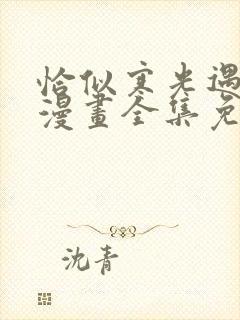 恰似寒光遇
漫畫全集免
沈青